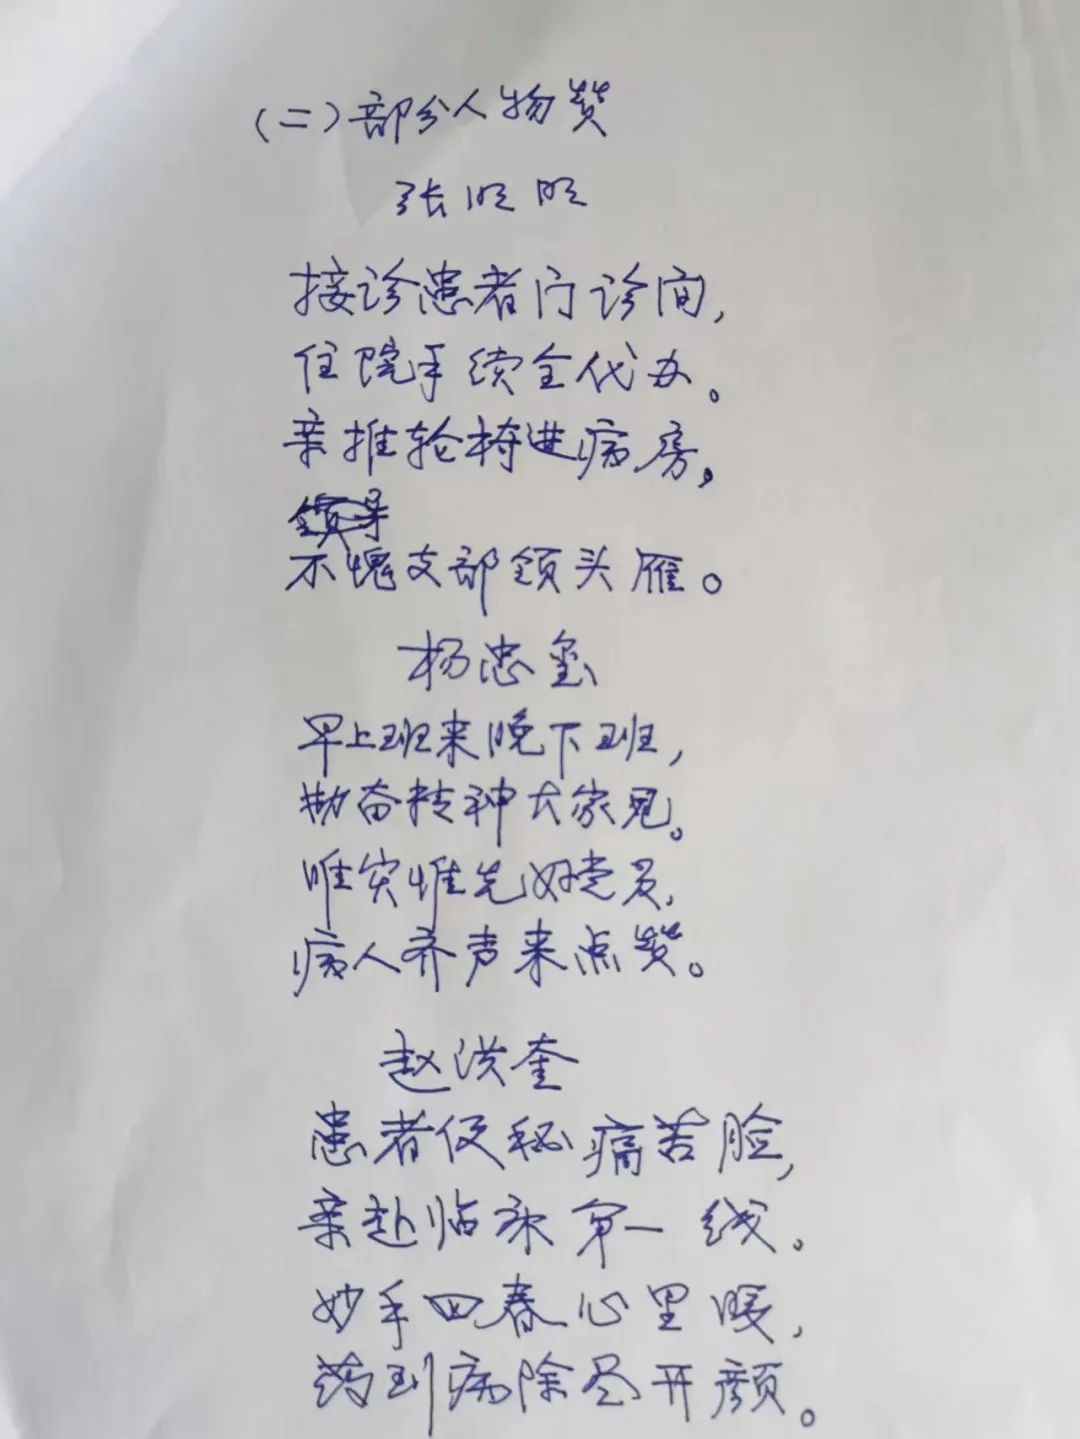 （二）部分人物赞
张旺旺
接诊患者门诊间，
住院手续全代办。
亲推轮椅进病房，
领导
不愧支部领头雁。
杨忠玺
早上班来晚下班，
勤奋精神大家见。
唯实惟先好党员，
病人齐声来点赞。
赵洪奎
患者便秘痛苦脸，
亲赴临床第一线。
妙手回春心里暖，
药到病除尽开颜。